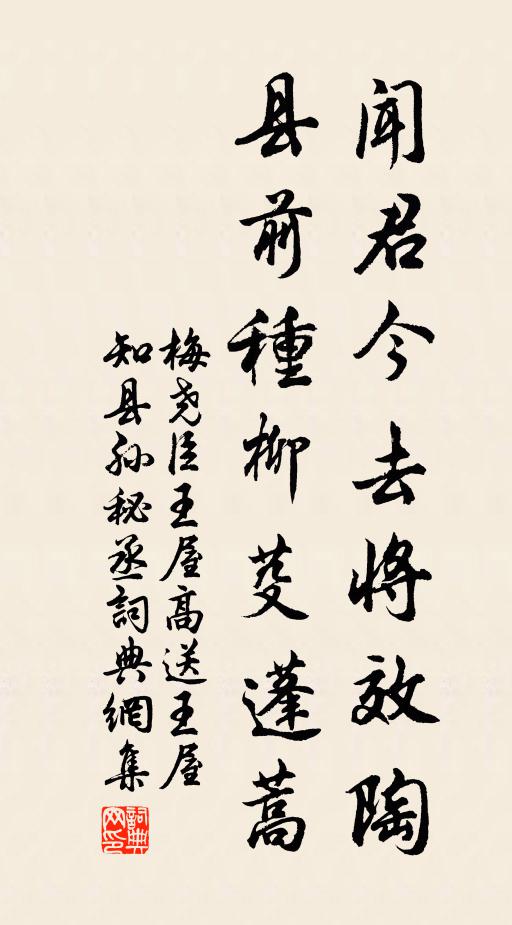 闻君今去将效陶
县前種柳芟蓬蒿
梅尧臣王屋高送王屋
知县孙秘丞詞典網集
詞典